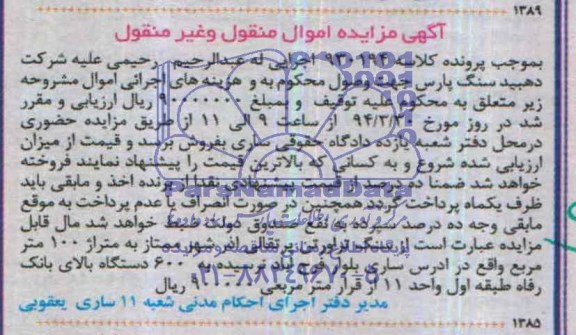 ۱۳۸۹
آگهی مزایده اموال منقول وغیر منقول
بموجب پرونده کلاسه ۹۳۰۱۹۴ اجرایی له عبدالرحیم رحیمی علیه شرکت
دهبید سنگ پارس جهت وصول محکوم به و هزینه های اجرائی اموال مشروحه
زیر متعلق به محکوم علیه توقیف و بمبلغ ریال ارزیابی و مقرر
شد در روز مورخ از ساعت ۹ الی ۱۱ از طریق مزایده حضوری
درمحل دفتر شعبه یازده دادگاه حقوقی ساری بفروش برسد و قیمت از میزان
ارزیابی شده شروع و به کسانی که بالاترین قیمت را پیشنهاد نمایند فروخته
خواهد شد ضمنا ده درصد از قیمت پیشنهادی نقدا از برنده اخذ و مابقی باید
ظرف یکماه پرداخت گردد همچنین در صورت انصراف یا عدم پرداخت به موقع
مابقی وجه ده درصد سپرده به نفع صندوق دولت ضبط خواهد شد مال قابل
مزایده عبارت است از سنگ تراورتن پرتقالی سوپر ممتاز به متراژ ۱۰۰ متر
مربع واقع در ادرس ساری بلوار نرسیده به ۶۰۰ دستگاه بالای بانک
رفاه طبقه اول واحد ۱۱ از قرار متر مربعی ریال
مدیر دفتر اجرای احکام مدنی شعبه ۱۱ ساری یعقوبی
۱۳۸۵
ParsNamadData
۰۲۱-۸۸۳۴۹۶۷۰